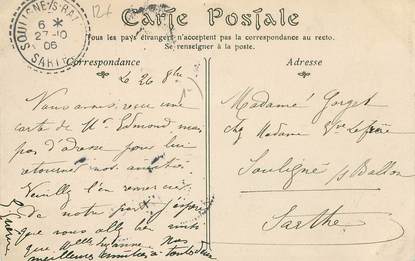 Carte Postale
Tous les pays étrangers n'acceptent pas la correspondance au recto.
Se renseigner à la poste.
Correspondance
Adresse
SOULIGNÉ-S-BAL
6 *
27-10
06
SARTHE
12f
Le 26 8bre
Nous avons reçu une
carte de Mr Edmond mais
pas d'adresse pour lui
retourner nos amitiés
Veuillez l'en remercier
de notre part j'espère
que vous allez bien ainsi
que Melle Suzanne Nos
meilleures amitiés à toutes deux
Madame Gorget
chez Madame Vve
Souligné s/ Ballon
Sarthe